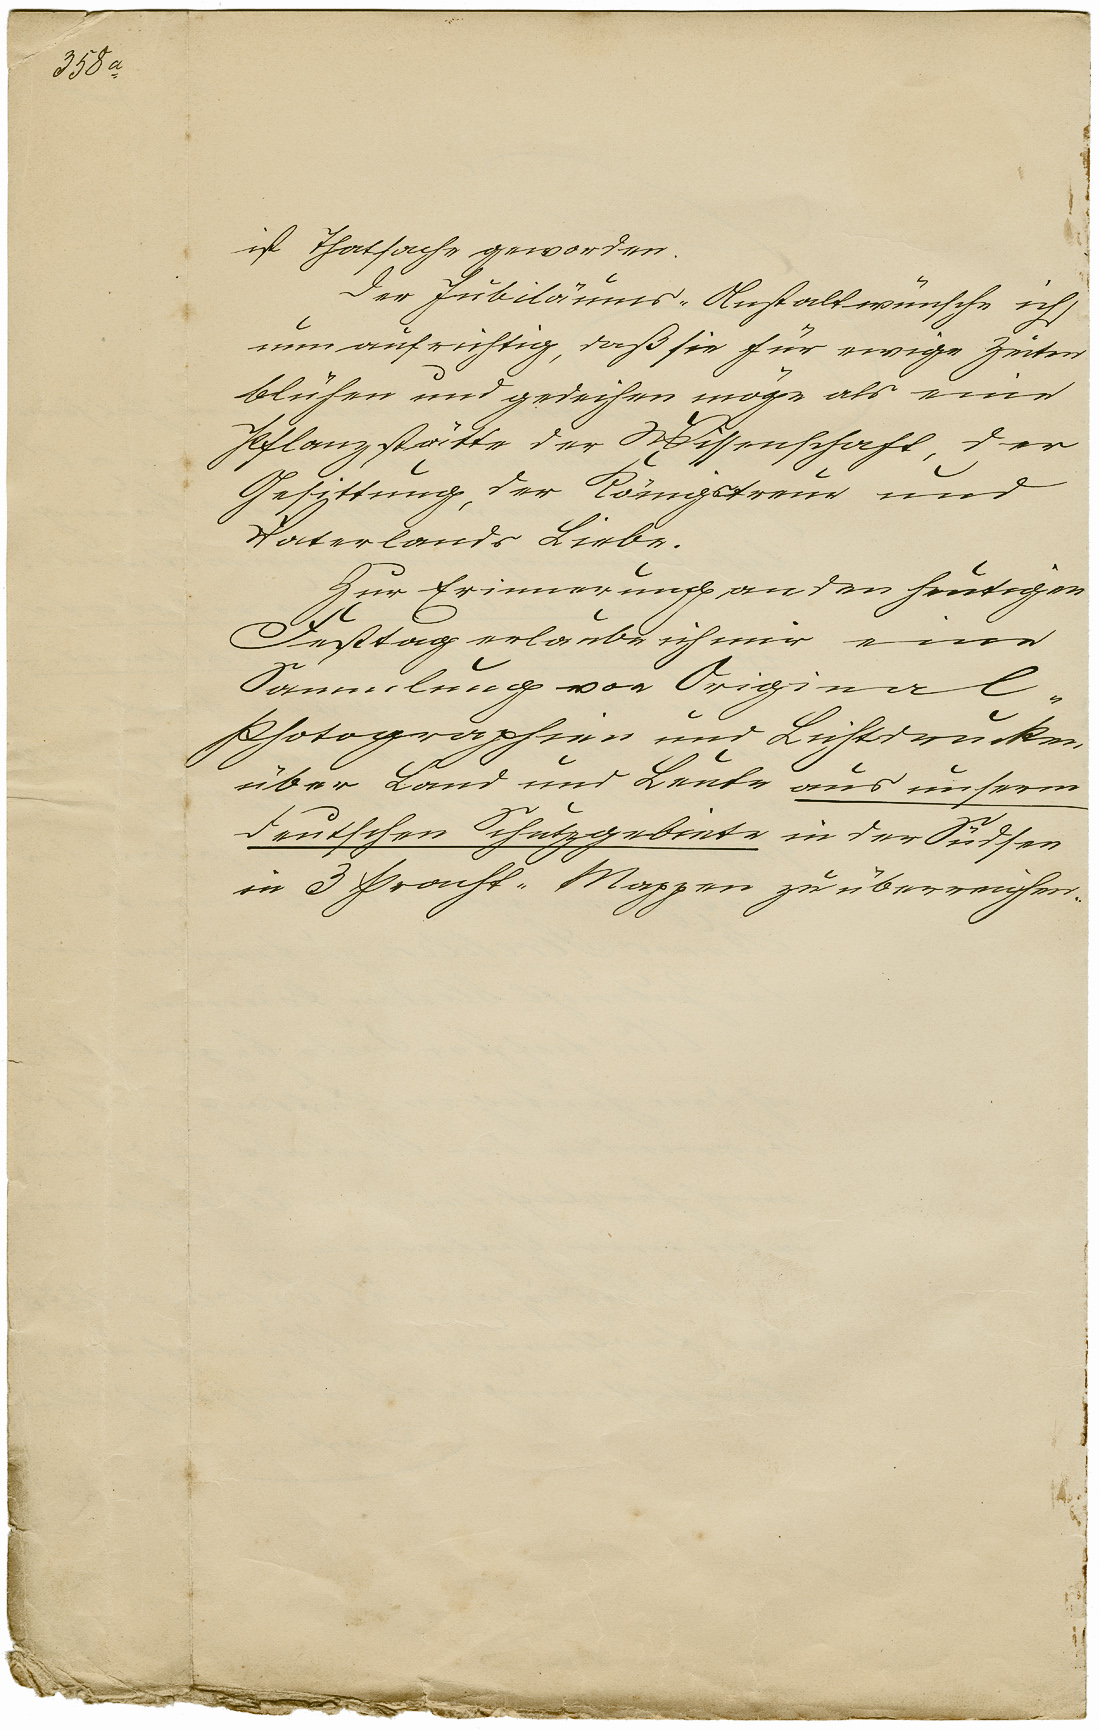 358a
ist Thatsache geworden.
Der Jubiläums-Anstalt wünsche ich
nun aufrichtig, daß sie für ewige Zeiten
blühen und gedeihen möge als eine
Pflanzstätte der Wissenschaft, der
Gesittung, der Königstreue und
Vaterlands Liebe.
Zur Erinnerung an den heutigen
Festtag erlaube ich mir eine
Sammlung von Original-
Photographien und Lichtdrucken
über Land und Leute aus unserm
deutschen Schutzgebiete in der Südsee
in 3 Pracht-Mappen zu überreichen.